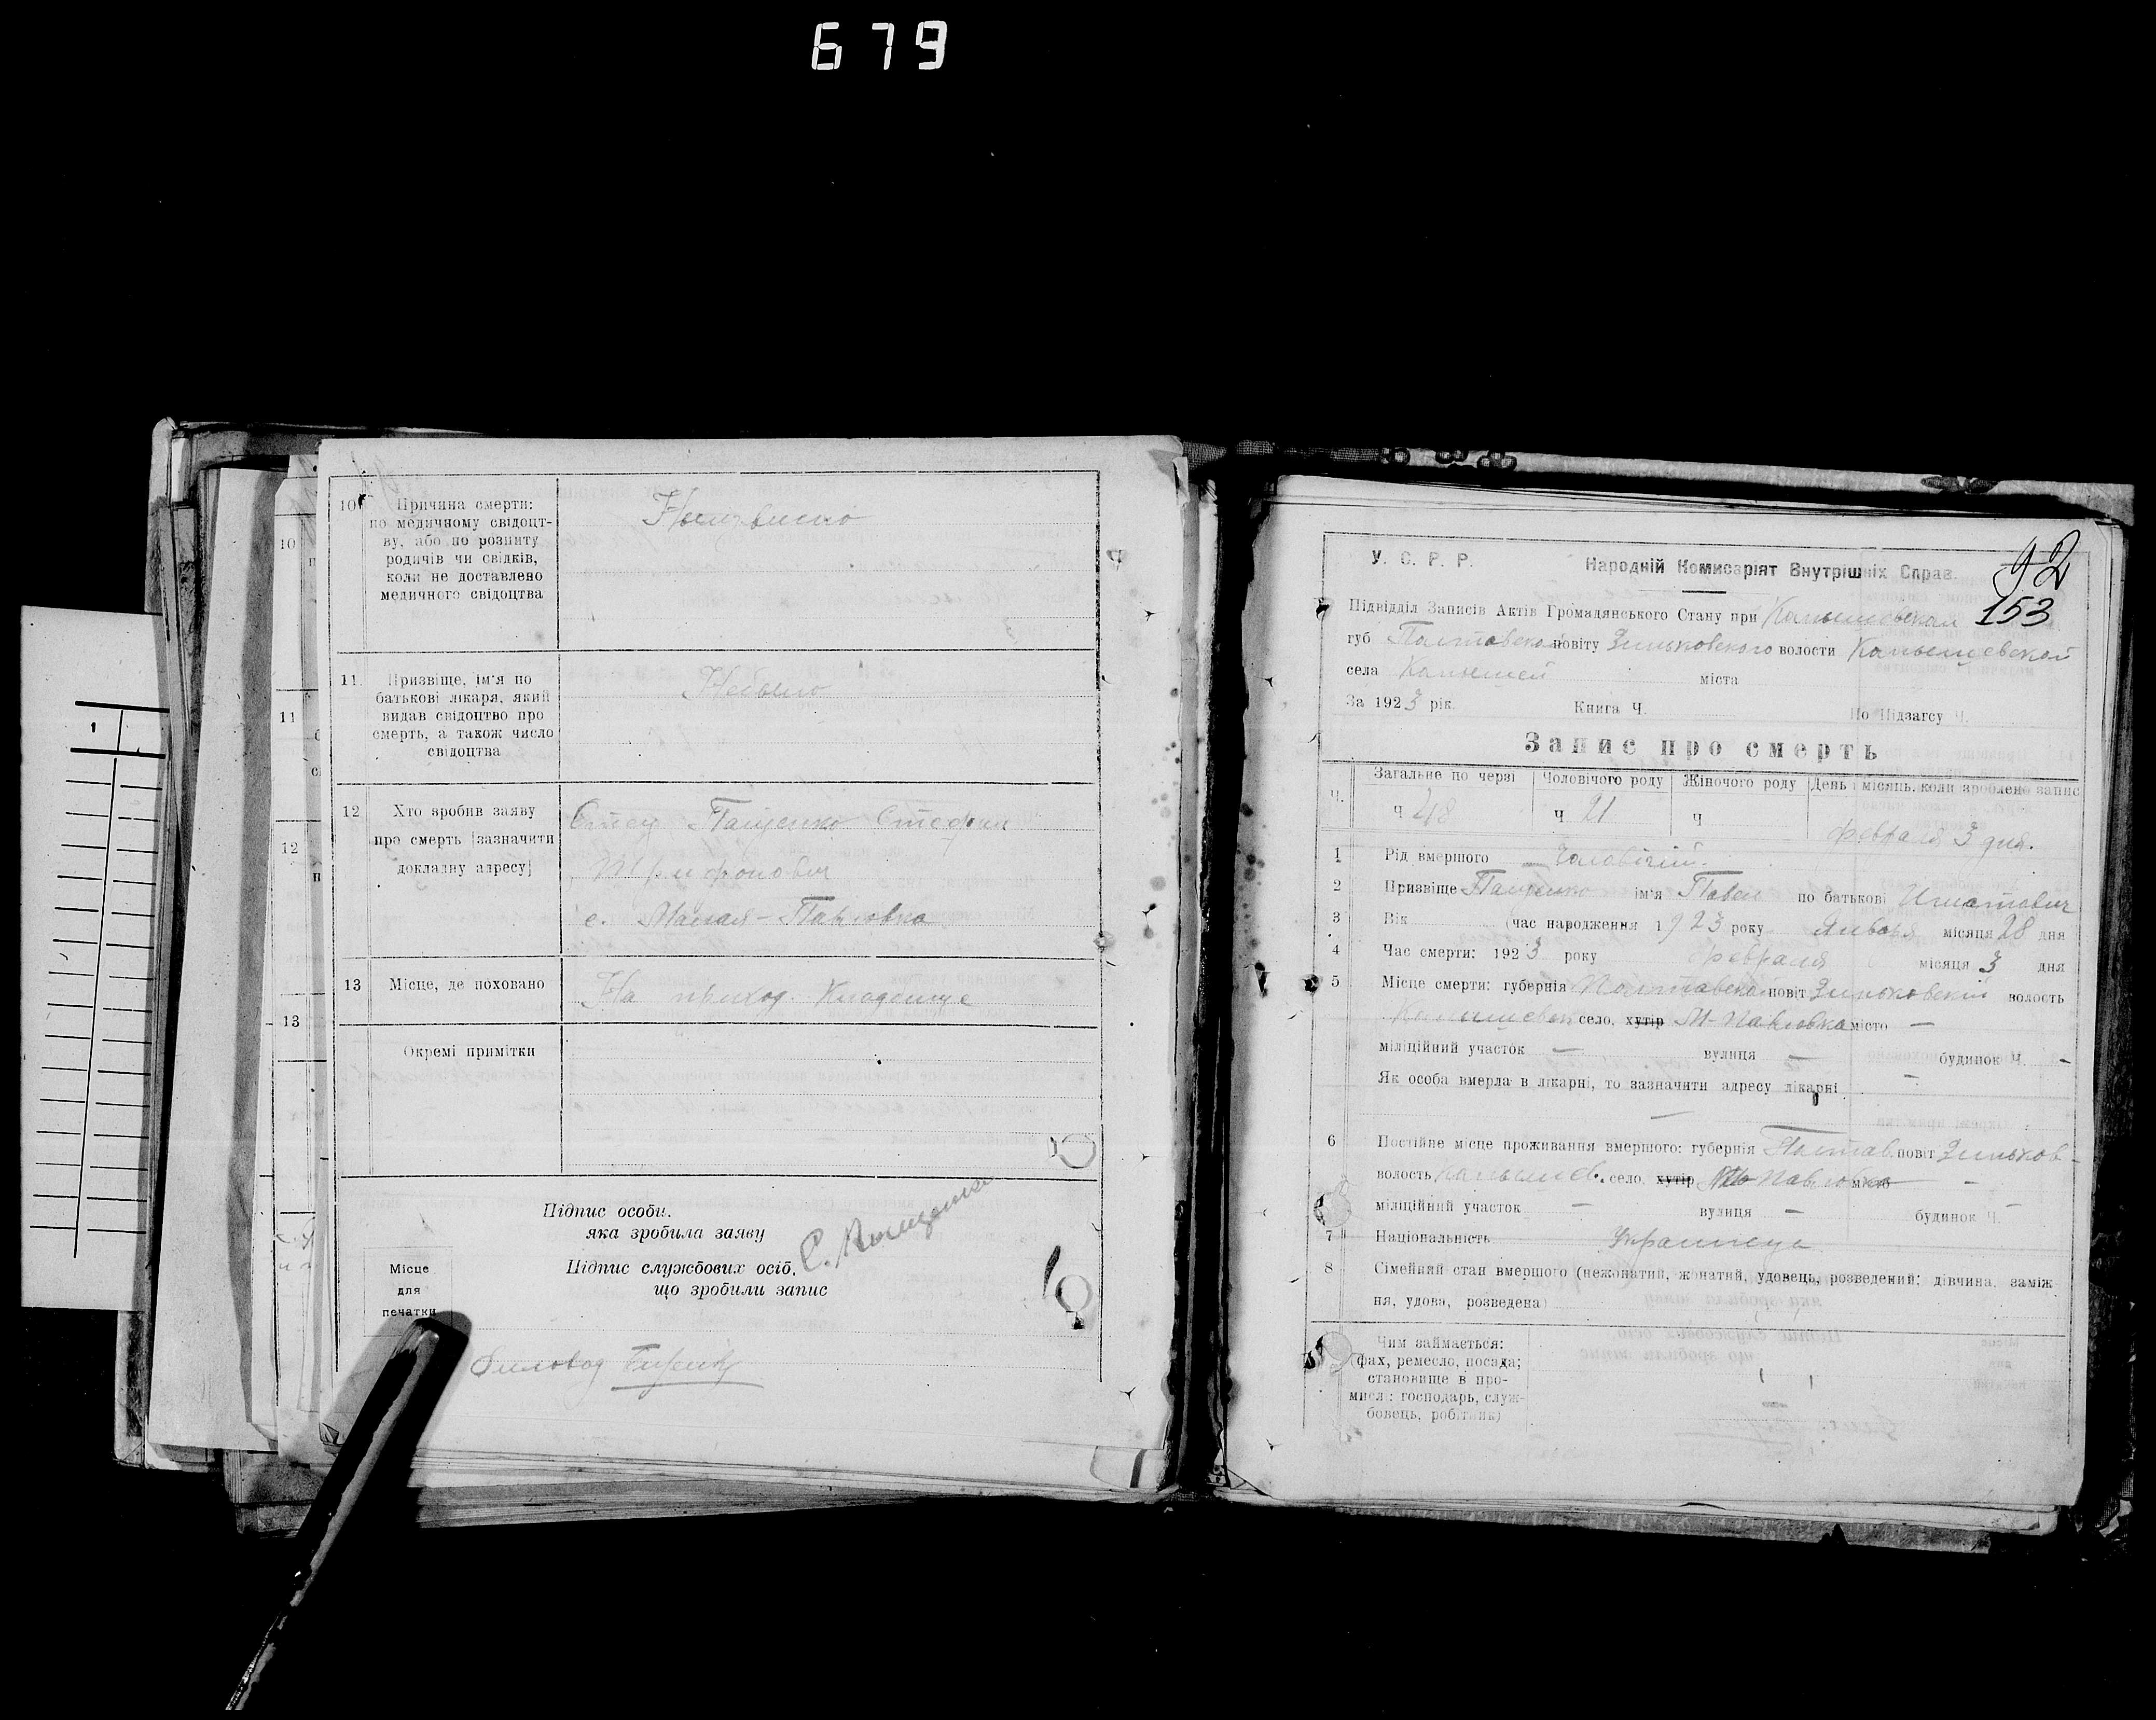 679
10
Причина смерти:
по медичному свідоцт-
ву, або по розпиту
родичів чи свідків,
коли не доставлено
медичного свідоцтва
11
Призвіще, ім'я по
батькові лікаря, який
видав свідоцтво про
смерть, а також число
свідоцтва
Небыло
12
Хто зробив заяву
про смерть (зазначити
докладну адресу)
Отец Пащенко Стефан
Трифонович
с. Малая-Павловка
13
Місце, де поховано
На приход. Кладбище
Окремі примітки
Підпис особи,
яка зробила заяву
С. Пащенко
Підпис службових осіб,
що зробили запис
Місце
для
печатки
Диловод
10
11
12
13
92
У. С. Р. Р. Народній Комисаріят Внутрішніх Справ.
153
Підвідділ Записів Актів Громадянського Стану при
губ Полтавской повіту Зиньковского волости
села міста
За 1923 рік. Книга Ч. По Підзагсу Ч.
Запис про смерть
Ч. Загальне по черзі Чоловічого роду Жіночого роду День і місяць, коли зроблено запис
Ч 48 Ч 21 Ч февраля 3 дня.
1 Рід вмершого Чоловічий.
2 Призвіще Пащенко ім'я Павел по батькові Игнатович
3 Вік (час народження 1923 року Января місяця 28 дня
4 Час смерти: 1923 року февраля місяця 3 дня
5 Місце смерти: губернія Полтавская повіт Зиньковский волость
село, хутір М-Павловка місто —
міліційний участок — вулиця — будинок Ч. -
Як особа вмерла в лікарні, то зазначити адресу лікарні —
—
6 Постійне місце проживання вмершого: губернія Полтав. повіт Зиньков-
волость село, хутір Павловка місто —
міліційний участок — вулиця — будинок Ч. —
7 Національність Украинец
8 Сімейний стан вмершого (нежонатий, жонатий, удовець, розведений; дівчина, заміж
ня, удова, розведена)
Чим займається:
(фах, ремесло, посада;
становище в про-
мислі: господарь, служ-
бовець, робітник)